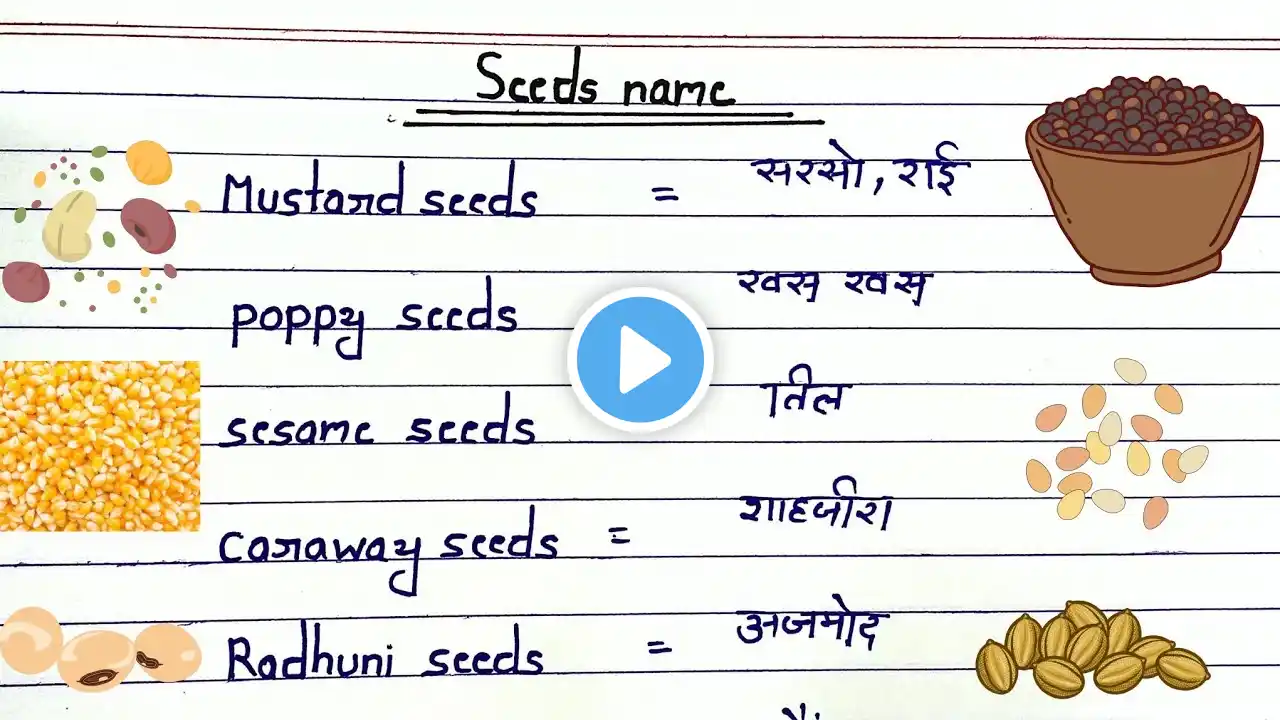 Seeds name
Mustard seeds = सरसो, राई
poppy seeds खस खस
sesame seeds तिल
caraway seeds = शाहजीरा
Radhuni seeds = अजमोद